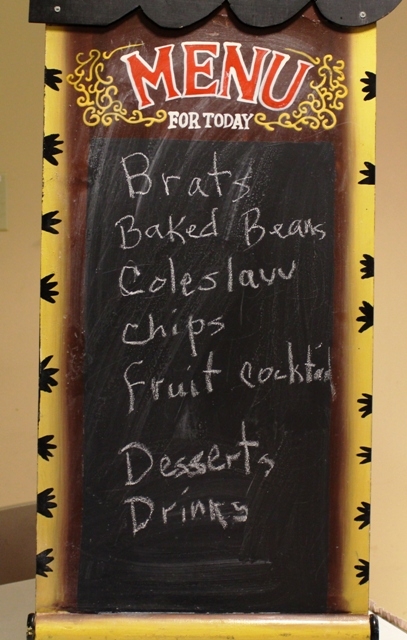 MENU
FOR TODAY
Brats
Baked Beans
Coleslaw
chips
fruit cocktail
Desserts
Drinks